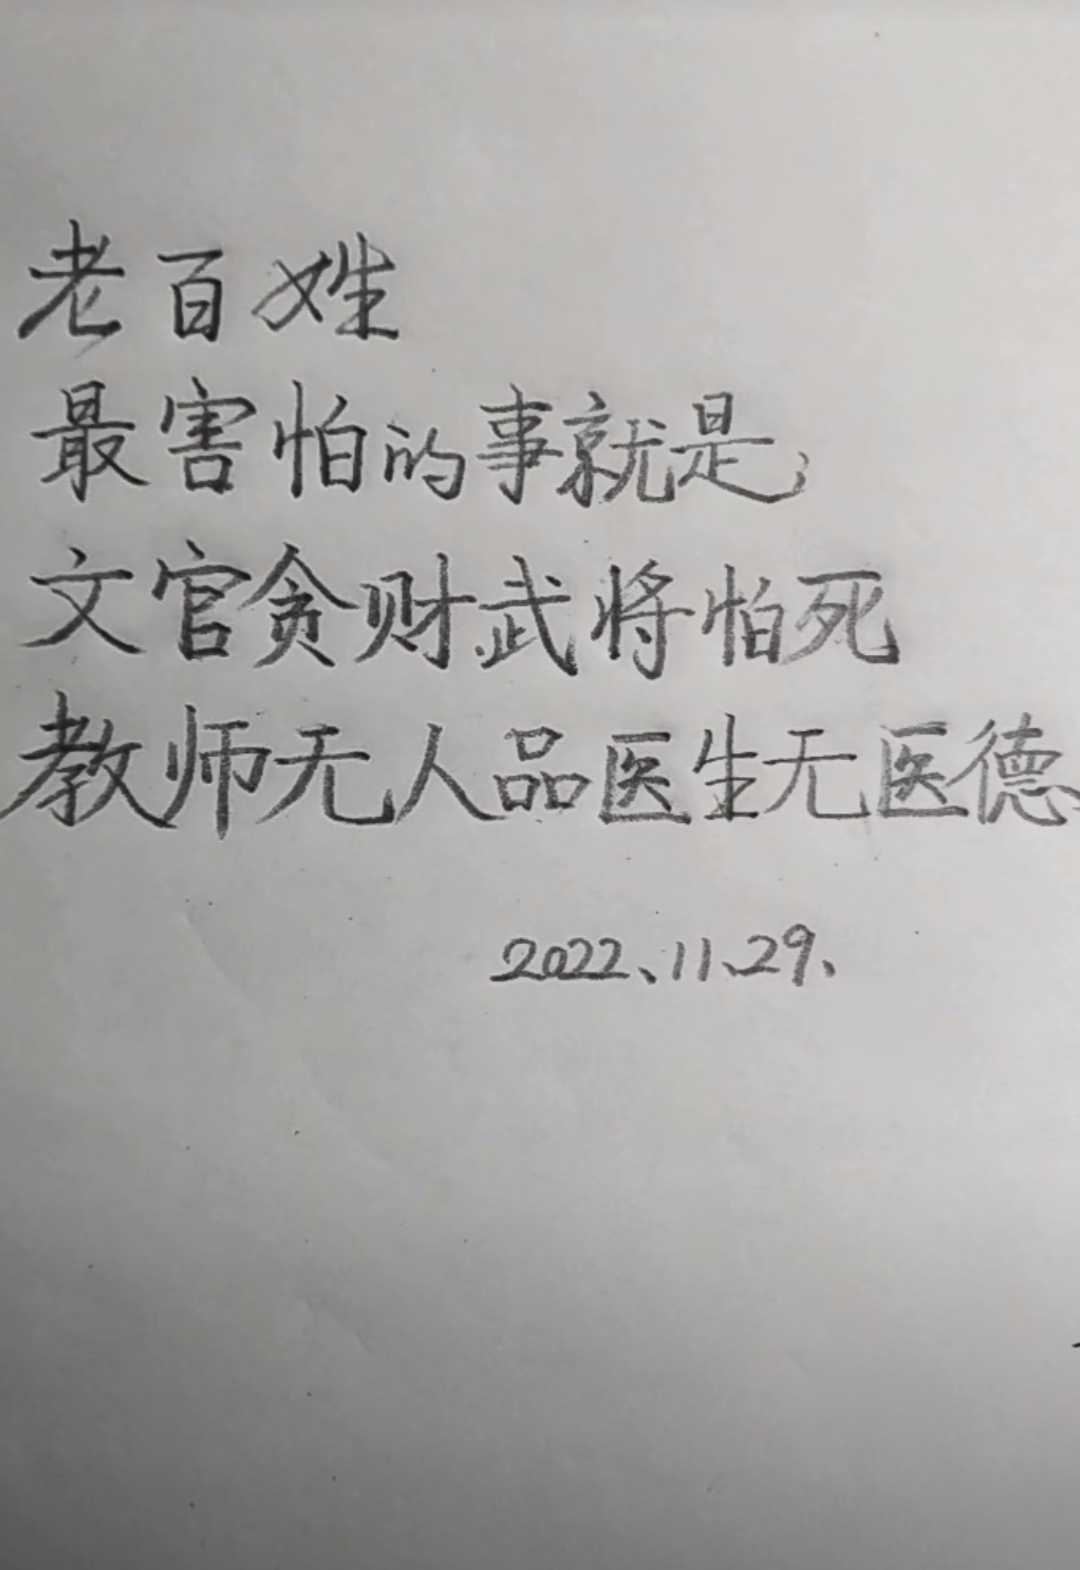 老百姓
最害怕的事就是，
文官贪财武将怕死
教师无人品医生无医德
2022、11、29、